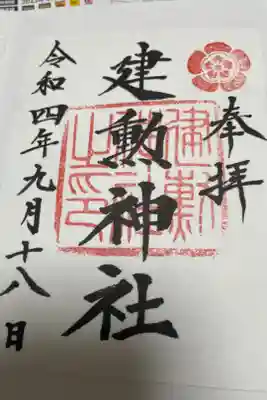 奉拝
建勲神社
令和四年九月十八日
建勲
神社
之印